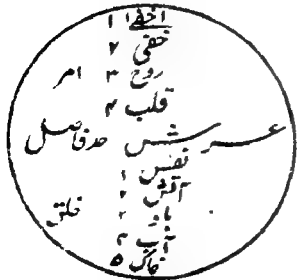 اخفیٰ ۱
خفی ۲
روح ۳ امر
قلب ۴
عرش حد فاصل
نفس ۱
آتش ۲
باد ۳ خلق
آب ۴
خاک ۵